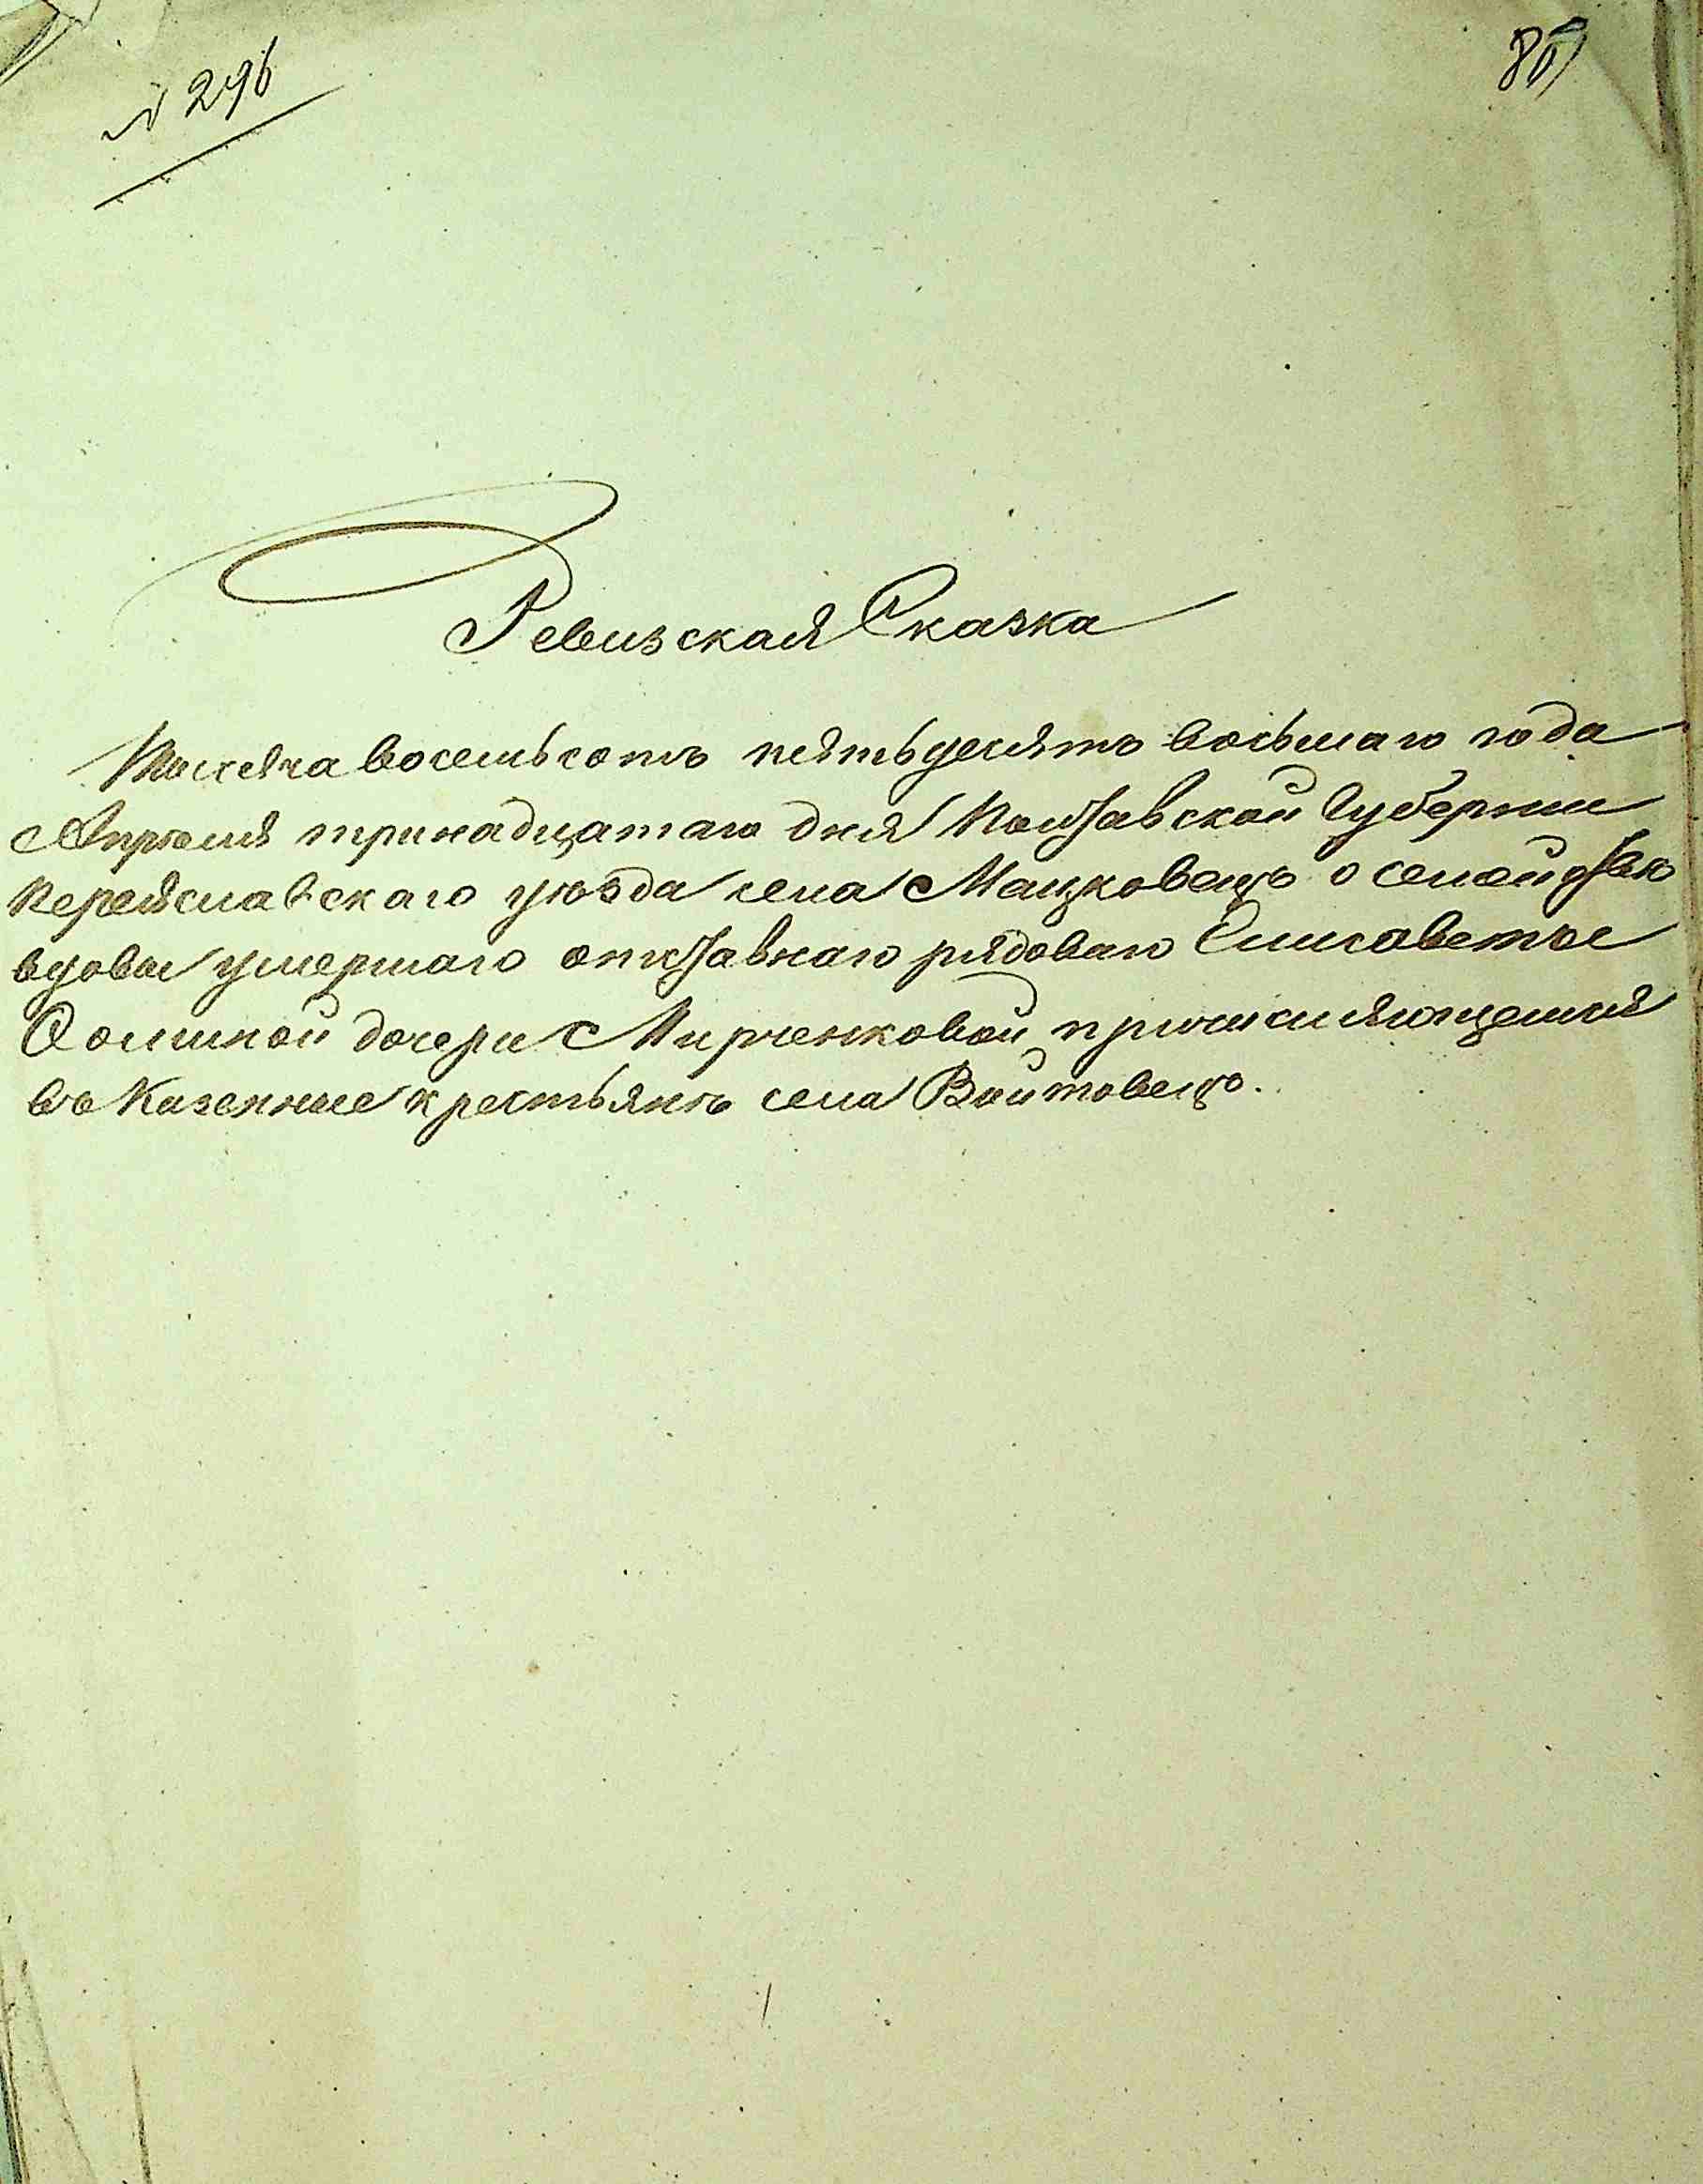 № 296
Ревизская Сказка
Тысяча восемьсотъ пятьдесятъ восьмаго года
Апрѣля тринадцатаго дня Полтавской Губерніи
Переяславскаго уѣзда села Мацковецъ о семействѣ
вдовы умершаго отставнаго рядоваго Елисаветы
Фоминой дочери Мирченковой причисляющемся
въ Казенные крестьянъ села Войтовецъ.